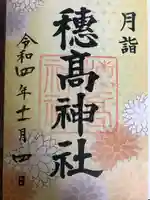 月詣
穂高神社
令和四年十一月四日